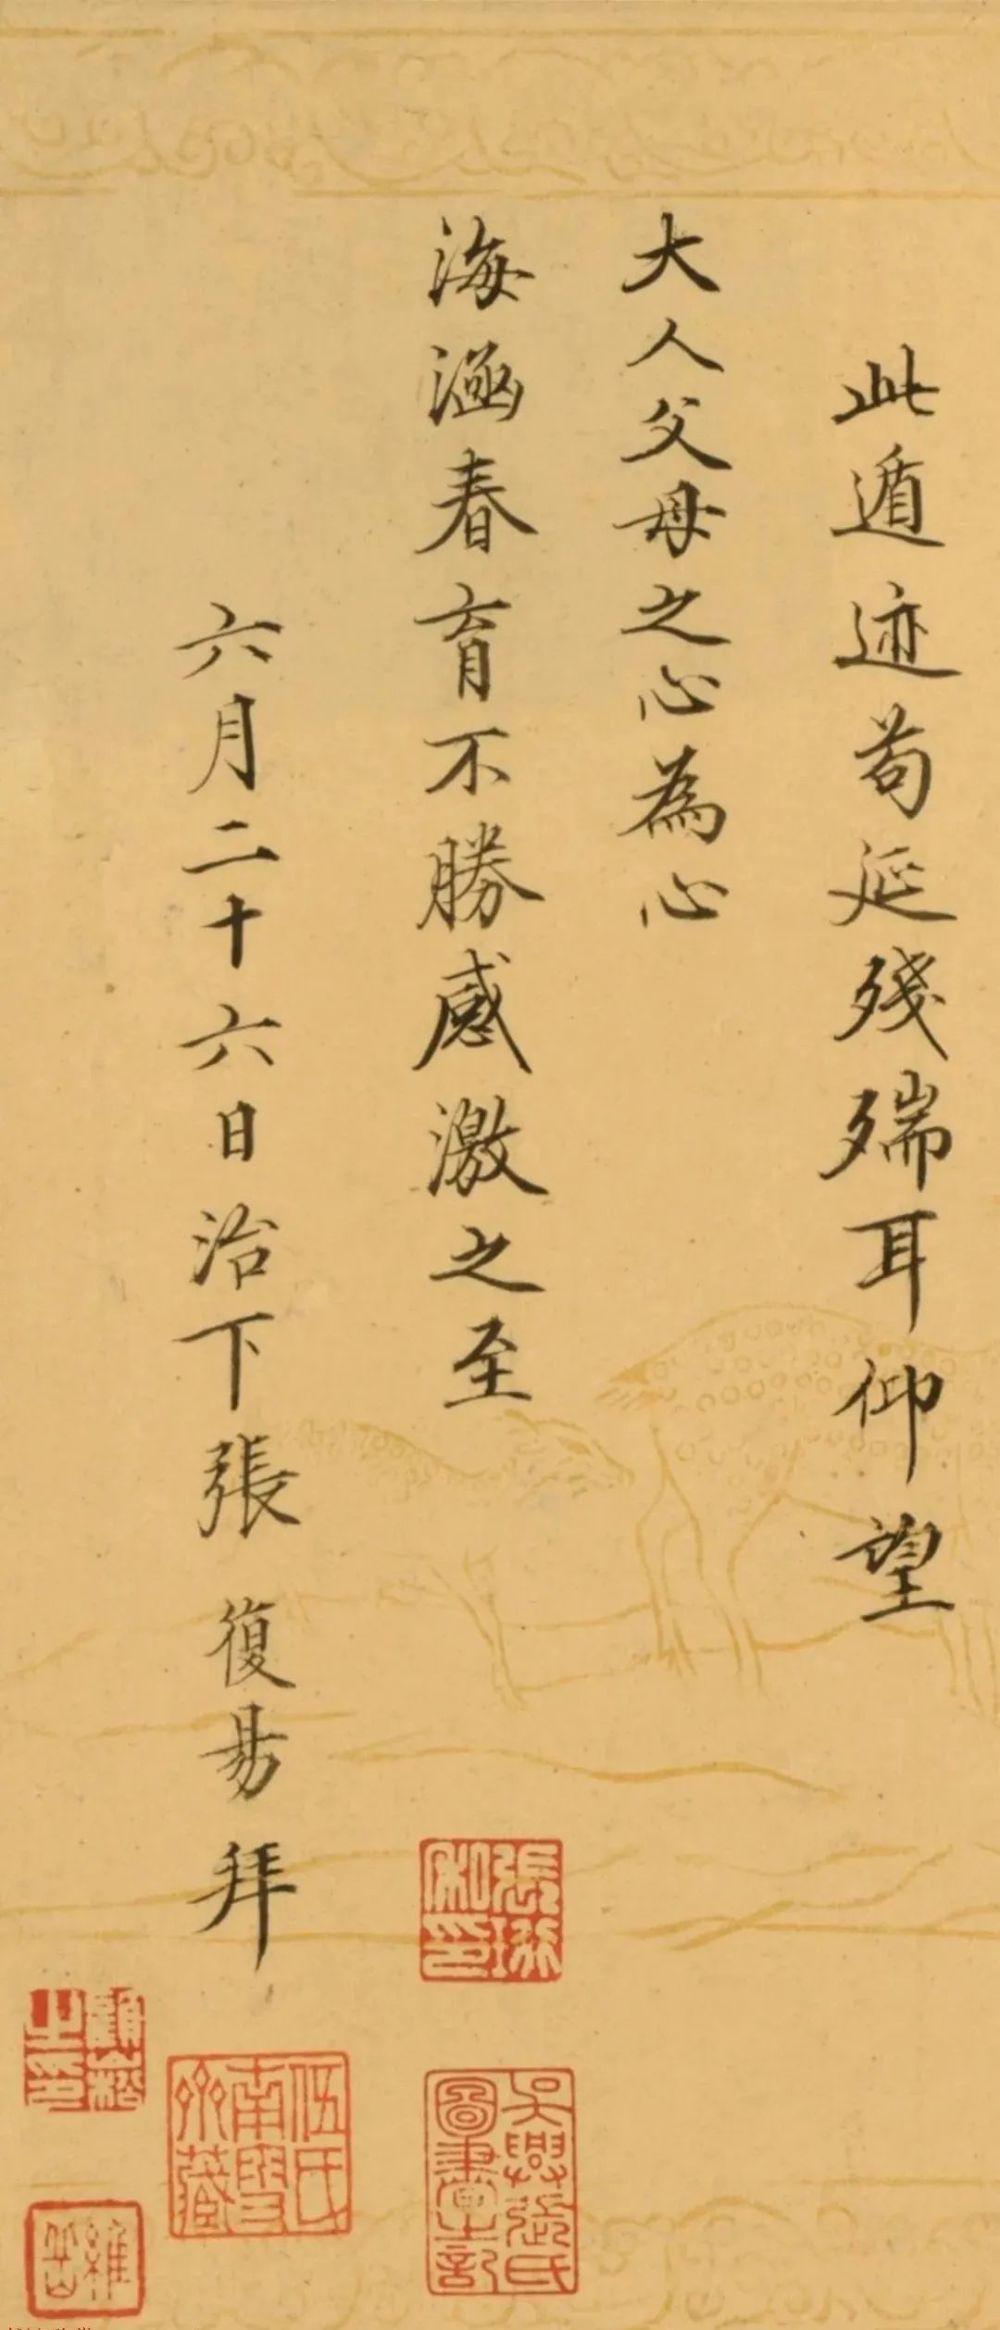 此遁迹苟延殘㡭耳仰望
大人父母之心為心
海涵春育不勝感激之至
六月二十六日治下張復昜拜
張珩私印
吳興張氏圖書之記
伍氏南雪齋藏
顧崧之印
維岳